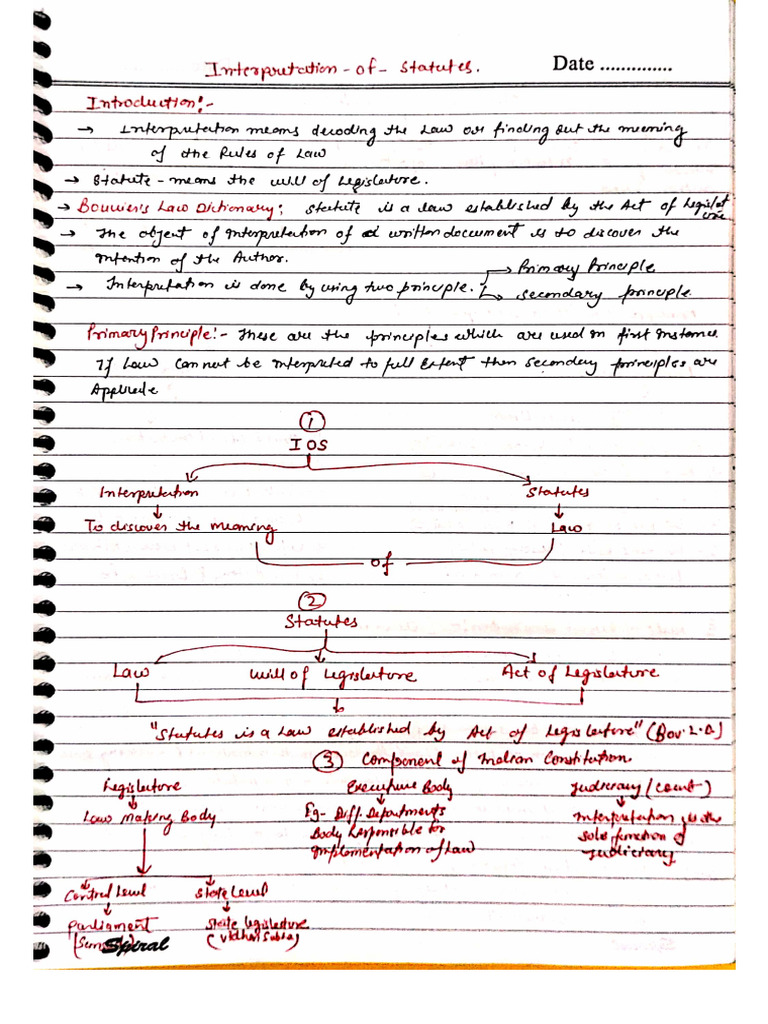 Interpretation - of - Statutes.
Date ..............
Introduction:-
→ Interpretation means decoding the Law or finding out the meaning
of the Rules of Law
→ Statute - means the will of Legislature.
→ Bouvier's Law Dictionary; Statute is a law established by the Act of Legislature
→ The object of interpretation of a written document is to discover the
intention of the Author.
→ Primary Principle
→ Interpretation is done by using two principle.
→ Secondary principle
Primary Principle:- These are the principles which are used in first instance
If Law cannot be interpreted to full Extent then secondary principles are
①
IOS
Interpretation Statutes
To discover the meaning Law
of
②
Statutes
Law will of Legislature Act of Legislature
"Statutes is a Law established by Act of Legislature" (Bov. L.D)
③ Component of Indian Constitution
Legislature Executive Body Judiciary (Court)
Law Making Body Eg- Diff. Departments Interpretation is the
Body Responsible for sole function of
Implementation of Law Judiciary
Central Level State Level
Parliament State legislature
(Vidhan Sabha)
Spiral